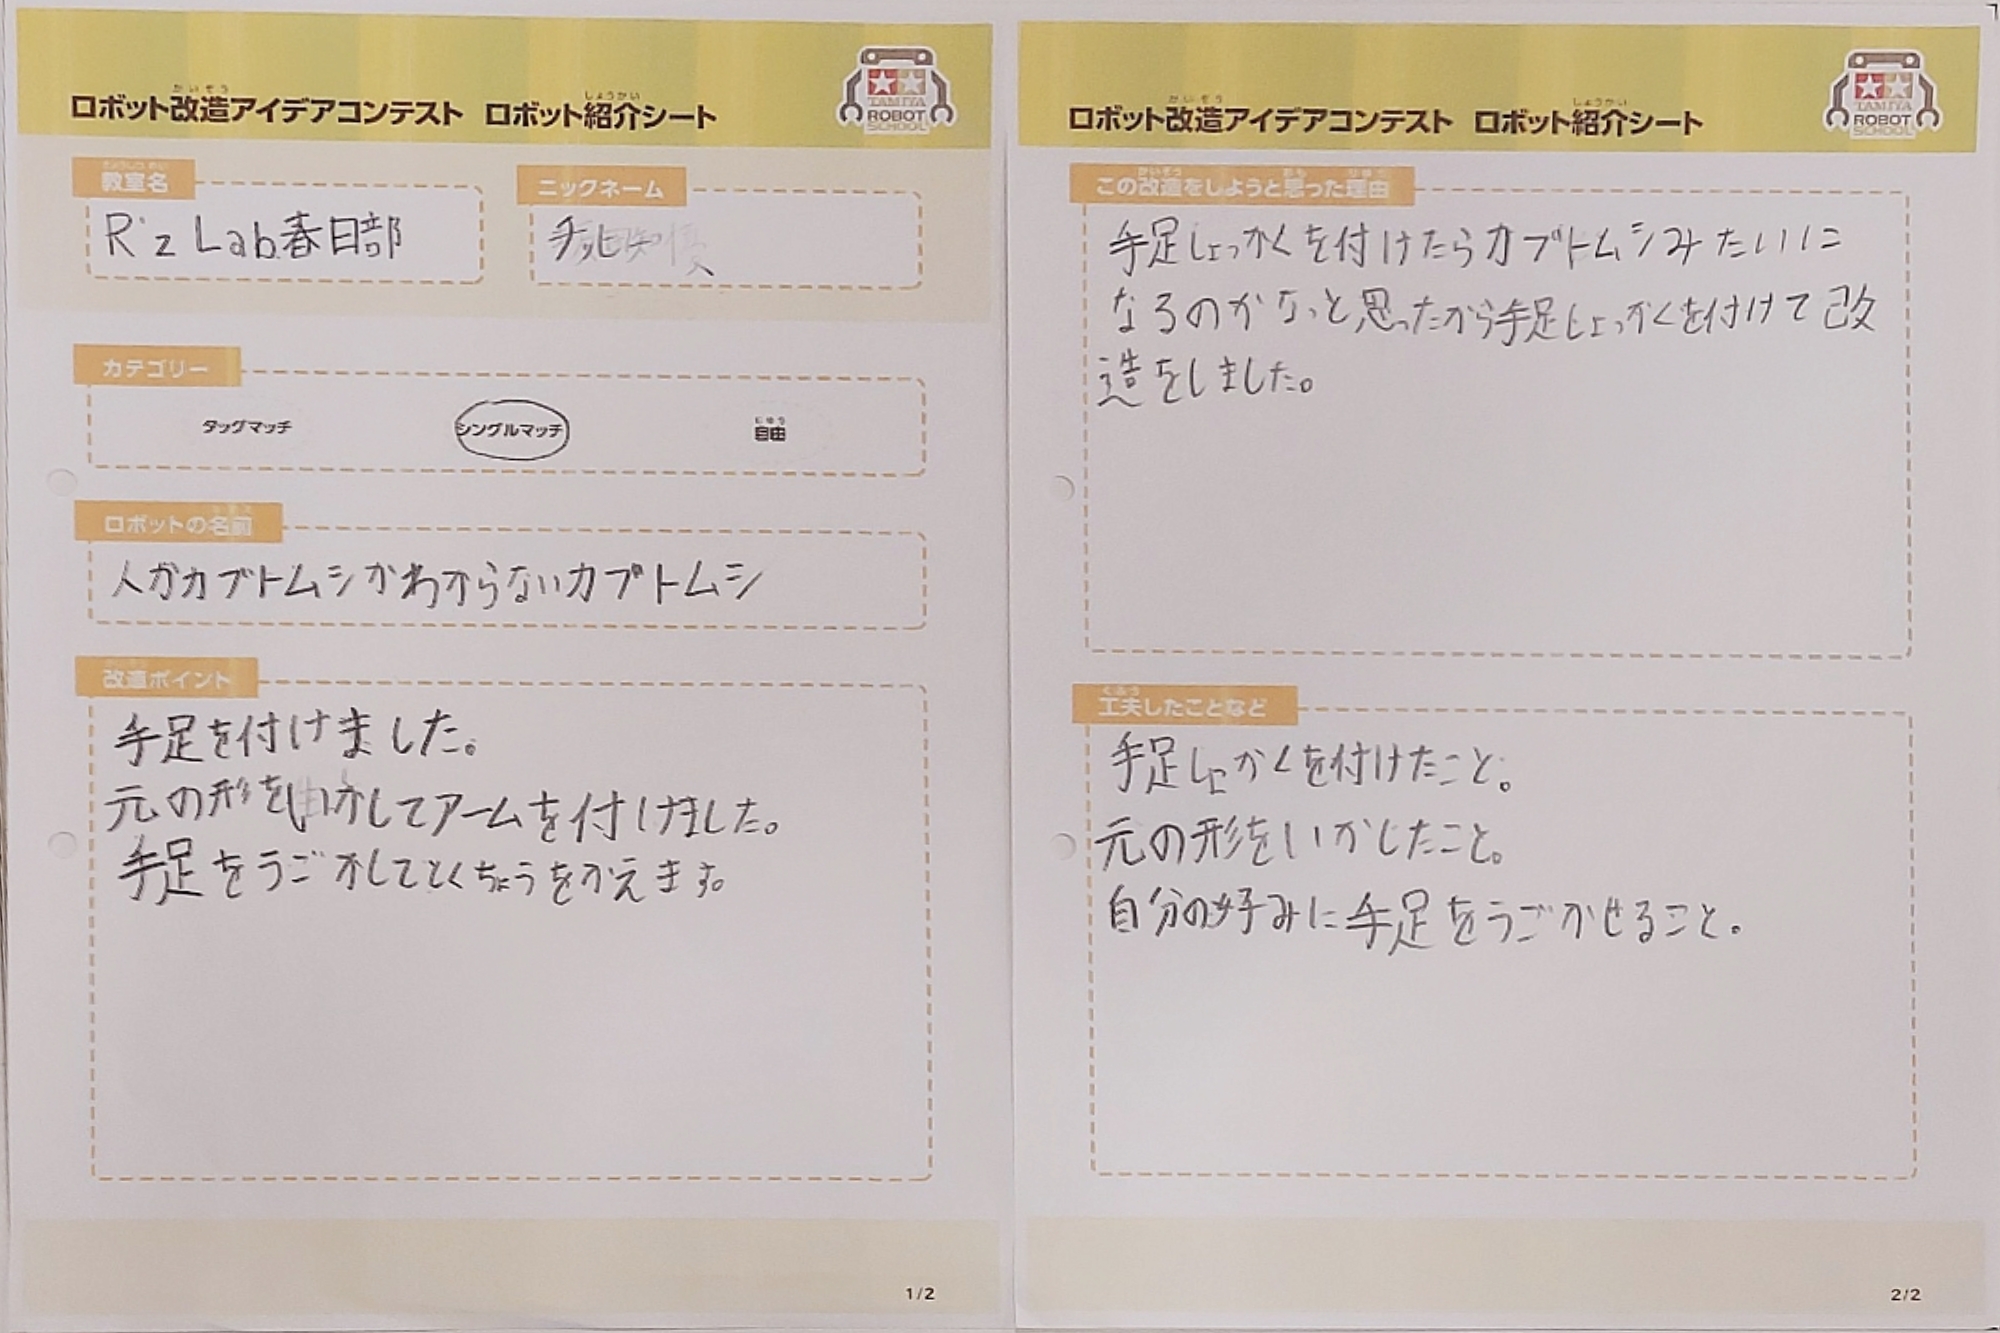 ロボット改造アイデアコンテスト ロボット紹介シート
かいぞう しょうかい
TAMIYA
ROBOT
SCHOOL
教室名
R'z Lab.春日部
ニックネーム
カテゴリー
タッグマッチ シングルマッチ 自由
じゆう
ロボットの名前
人がカブトムシかわからないカブトムシ
改造ポイント
手足を付けました。
元の形をいかしてアームを付けました。
手足をうごかしてとくちょうをかえます。
1/2
ロボット改造アイデアコンテスト ロボット紹介シート
かいぞう しょうかい
TAMIYA
ROBOT
SCHOOL
この改造をしようと思った理由
手足しょっかくを付けたらカブトムシみたいに
なるのかなっと思ったから手足しょっかくを付けて改
造をしました。
工夫したことなど
くふう
手足しょっかくを付けたこと。
元の形をいかしたこと。
自分の好みに手足をうごかせること。
2/2